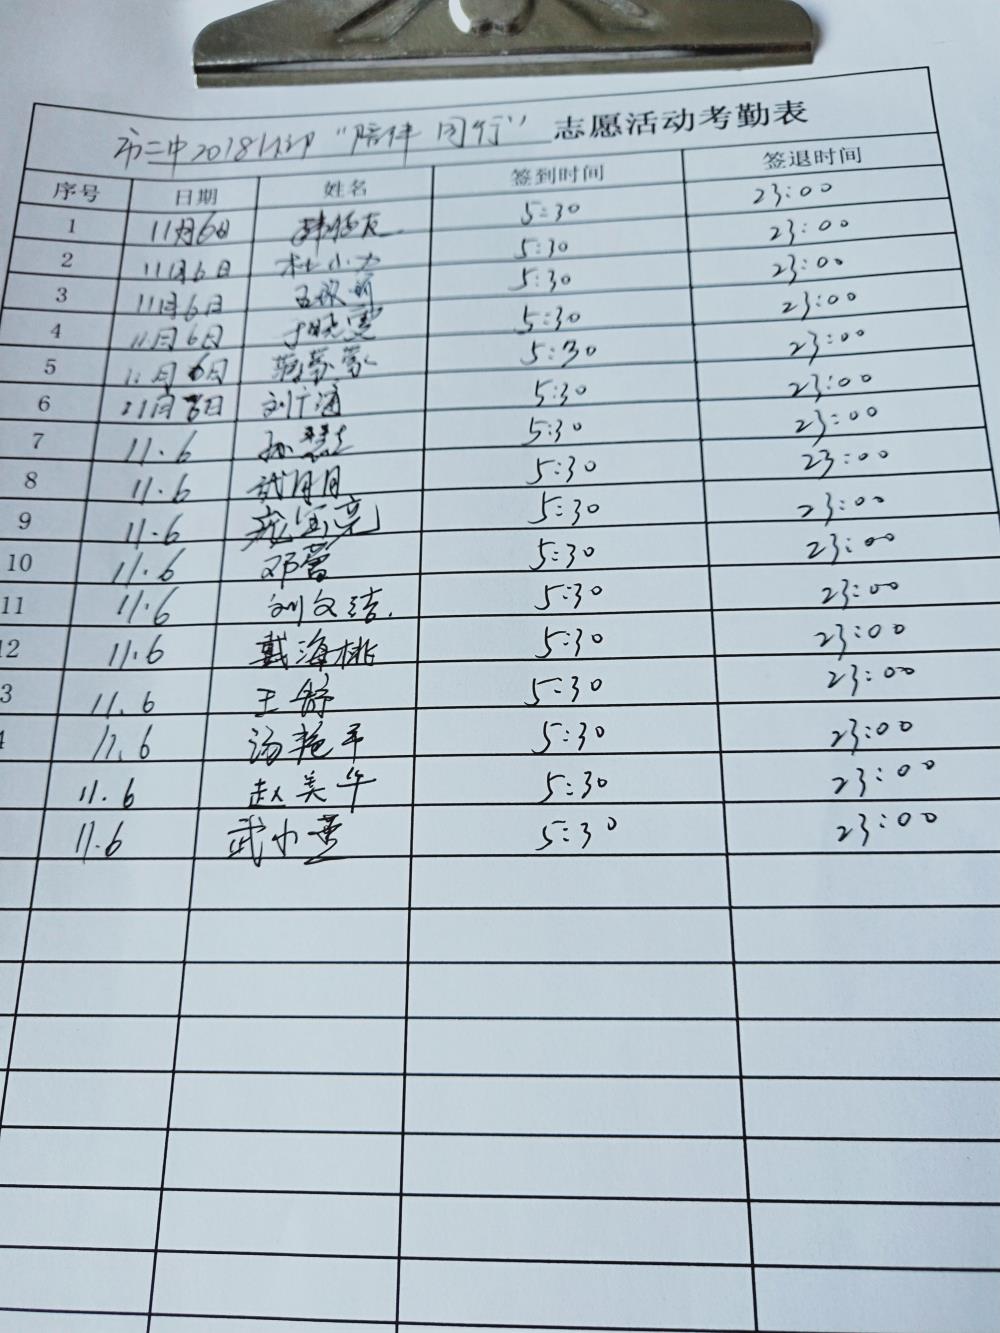 市二中2018 "陪伴 同行" 志愿活动考勤表
序号 日期 姓名 签到时间 签退时间
1 11月6日 5:30 23:00
2 11月6日 杜小力 5:30 23:00
3 11月6日 5:30 23:00
4 11月6日 于晓雯 5:30 23:00
5 11月6日 5:30 23:00
6 11月6日 刘广涌 5:30 23:00
7 11.6 孙慧 5:30 23:00
8 11.6 武月月 5:30 23:00
9 11.6 5:30 23:00
10 11.6 邓蕾 5:30 23:00
11 11.6 刘文洁 5:30 23:00
12 11.6 戴海桃 5:30 23:00
3 11.6 王舒 5:30 23:00
4 11.6 汤艳平 5:30 23:00
11.6 赵美华 5:30 23:00
11.6 武小燕 5:30 23:00